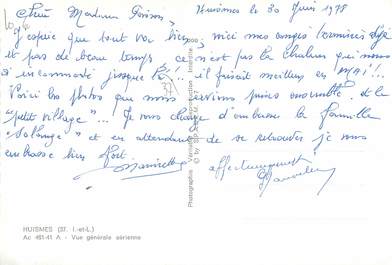 Huismes le 30 Juin 1978
Chère Madame
J'espère que tout va bien, ici mes congés terminés déjà
et pas de beau temps ce n'est pas la chaleur qui nous
a incommodé jusque là !!! il faisait meilleur en MAI !!!
Voici les photos que nous avions prises ensemble et le
"petit village"... Je vous charge d'embrasser la famille
"Solange" et en attendant de se retrouver je vous
embrasse bien fort
affectueusement
HUISMES (37. I.-et-L.)
Ac 461-41 A. - Vue générale aérienne
Photographie Véritable - Reproduction Interdite
© by